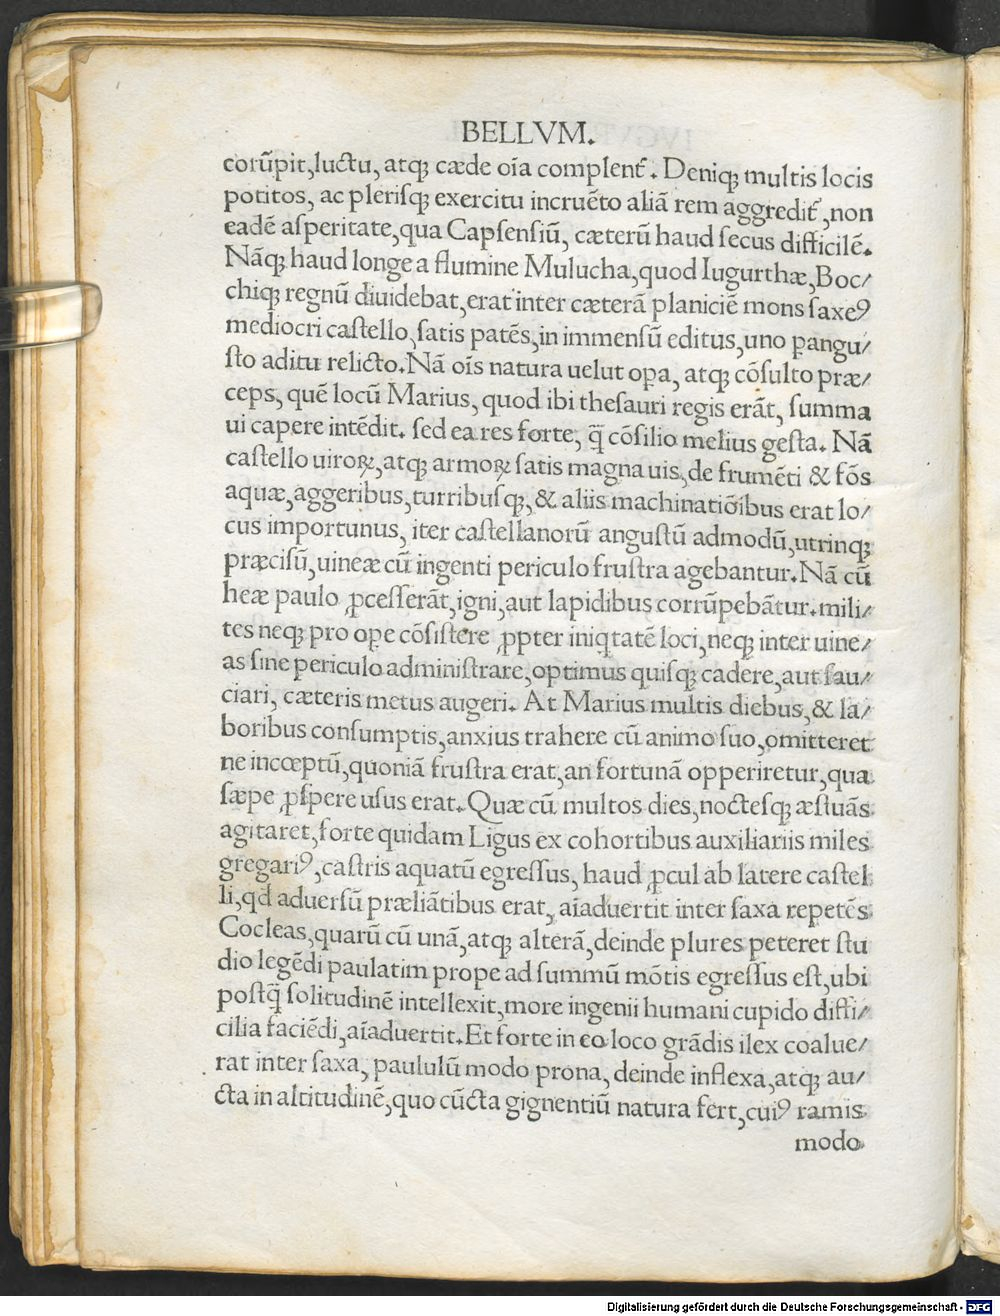 BELLVM.
corũpit, luctu, atqꝫ cæde oĩa complent᷑. Deniqꝫ multis locis
potitos, ac pleriſqꝫ exercitu incruẽto aliã rem aggredit᷑, non
eadẽ aſperitate, qua Capſenſiũ, cæterũ haud ſecus difficilẽ.
Nãqꝫ haud longe a flumine Mulucha, quod Iugurthæ, Boc/
chiqꝫ regnũ diuidebat, erat inter cæterã planiciẽ mons ſaxeꝰ
mediocri caſtello, ſatis patẽs, in immenſũ editus, uno ꝑangu/
ſto aditu relicto. Nã oĩs natura uelut oꝑa, atqꝫ cõſulto præ/
ceps, quẽ locũ Marius, quod ibi theſauri regis erãt, ſumma
ui capere intẽdit. ſed ea res forte, q̃ cõſilio melius geſta. Nã
caſtello uiroꝝ, atqꝫ armoꝝ ſatis magna uis, de frumẽti & fõs
aquæ, aggeribus, turribuſqꝫ, & aliis machinatiõibus erat lo/
cus importunus, iter caſtellanorũ anguſtũ admodũ, utrinqꝫ
præciſũ, uineæ cũ ingenti periculo fruſtra agebantur. Nã cũ
heæ paulo ꝓceſſerãt, igni, aut lapidibus corrũpebãtur. mili/
tes neqꝫ pro ope cõſiſtere ꝓpter iniq̃tatẽ loci, neqꝫ inter uine/
as ſine periculo adminiſtrare, optimus quiſqꝫ cadere, aut ſau/
ciari, cæteris metus augeri. At Marius multis diebus, & la/
boribus conſumptis, anxius trahere cũ animo ſuo, omitteret
ne incœptũ, quoniã fruſtra erat, an fortunã opperiretur, qua
ſæpe ꝓſpere uſus erat. Quæ cũ multos dies, noctesqꝫ æſtuãs
agitaret, forte quidam Ligus ex cohortibus auxiliariis miles
gregariꝰ, caſtris aquatũ egreſſus, haud ꝓcul ab latere caſtel
li, qd̃ aduerſũ præliãtibus erat, aĩaduertit inter ſaxa repetẽs
Cocleas, quarũ cũ unã, atqꝫ alterã, deinde plures peteret ſtu
dio legẽdi paulatim prope ad ſummũ mõtis egreſſus eſt, ubi
poſtq̃ ſolitudinẽ intellexit, more ingenii humani cupido diffi/
cilia faciẽdi, aĩaduertit. Et forte in eo loco grãdis ilex coalue/
rat inter ſaxa, paululũ modo prona, deinde inflexa, atqꝫ au/
cta in altitudinẽ, quo cũcta gignentiũ natura fert, cuiꝰ ramis
modo
Digitalisierung gefördert durch die Deutsche Forschungsgemeinschaft - DFG